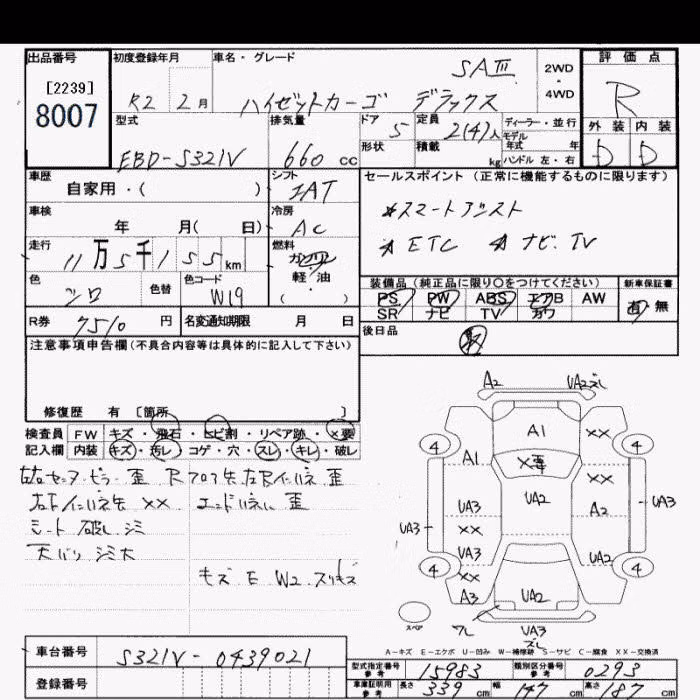 出品番号 初度登録年月 車名・グレード 評価点
[2239]
8007
R2 2月 ハイゼットカーゴ デラックス SAIII 2WD・4WD R
型式 排気量 ドア 定員 ディーラー・並行 外装 内装
EBD-S321V 660cc 5 2(4)人 モデル年式 年 D D
形状 積載 kg ハンドル 左・右
車歴 シフト セールスポイント(正常に機能するものに限ります)
自家用・( ) IAT
*スマートアシスト
車検 冷房
年 月( 日) AC
*ETC *ナビ.TV
走行 燃料
11万5千155km ガソリン
軽・油
( )
色 色替 色コード
シロ W19
装備品(純正品に限り○をつけてください) 新車保証書
PS PW ABS エアB AW 有 無
SR ナビ TV カワ
R券 7510円 名変通知期限 月 日
後日品
注意事項申告欄(不具合内容等は具体的に記入して下さい)
修復歴 有 [箇所 ]
検査員 FW キズ・飛石・ヒビ割・リペア跡・×要
記入欄 内装 キズ・汚レ・コゲ・穴・スレ・キレ・破レ
右センターピラー歪 Rフロア
××
エンド 歪
シート 破レ シミ
天バリ シミ大
キズ E W2 スリキズ
A2 UA2
4 A1 ×× 4
A1 ×要
××
UA3 UA2 A2 UA3
UA3 ××
UA3 UA2
4 ×× 4
A3 UA2
スペア ワレ UA3
A-キズ E-エクボ U-凹み W-補修跡 S-サビ C-腐食 ××-交換済
車台番号 S321V-0439021
型式指定番号 参考 15983 類別区分番号 参考 0293
登録番号
車庫証明用 参考 長さ 339cm 幅 147cm 高さ 187cm